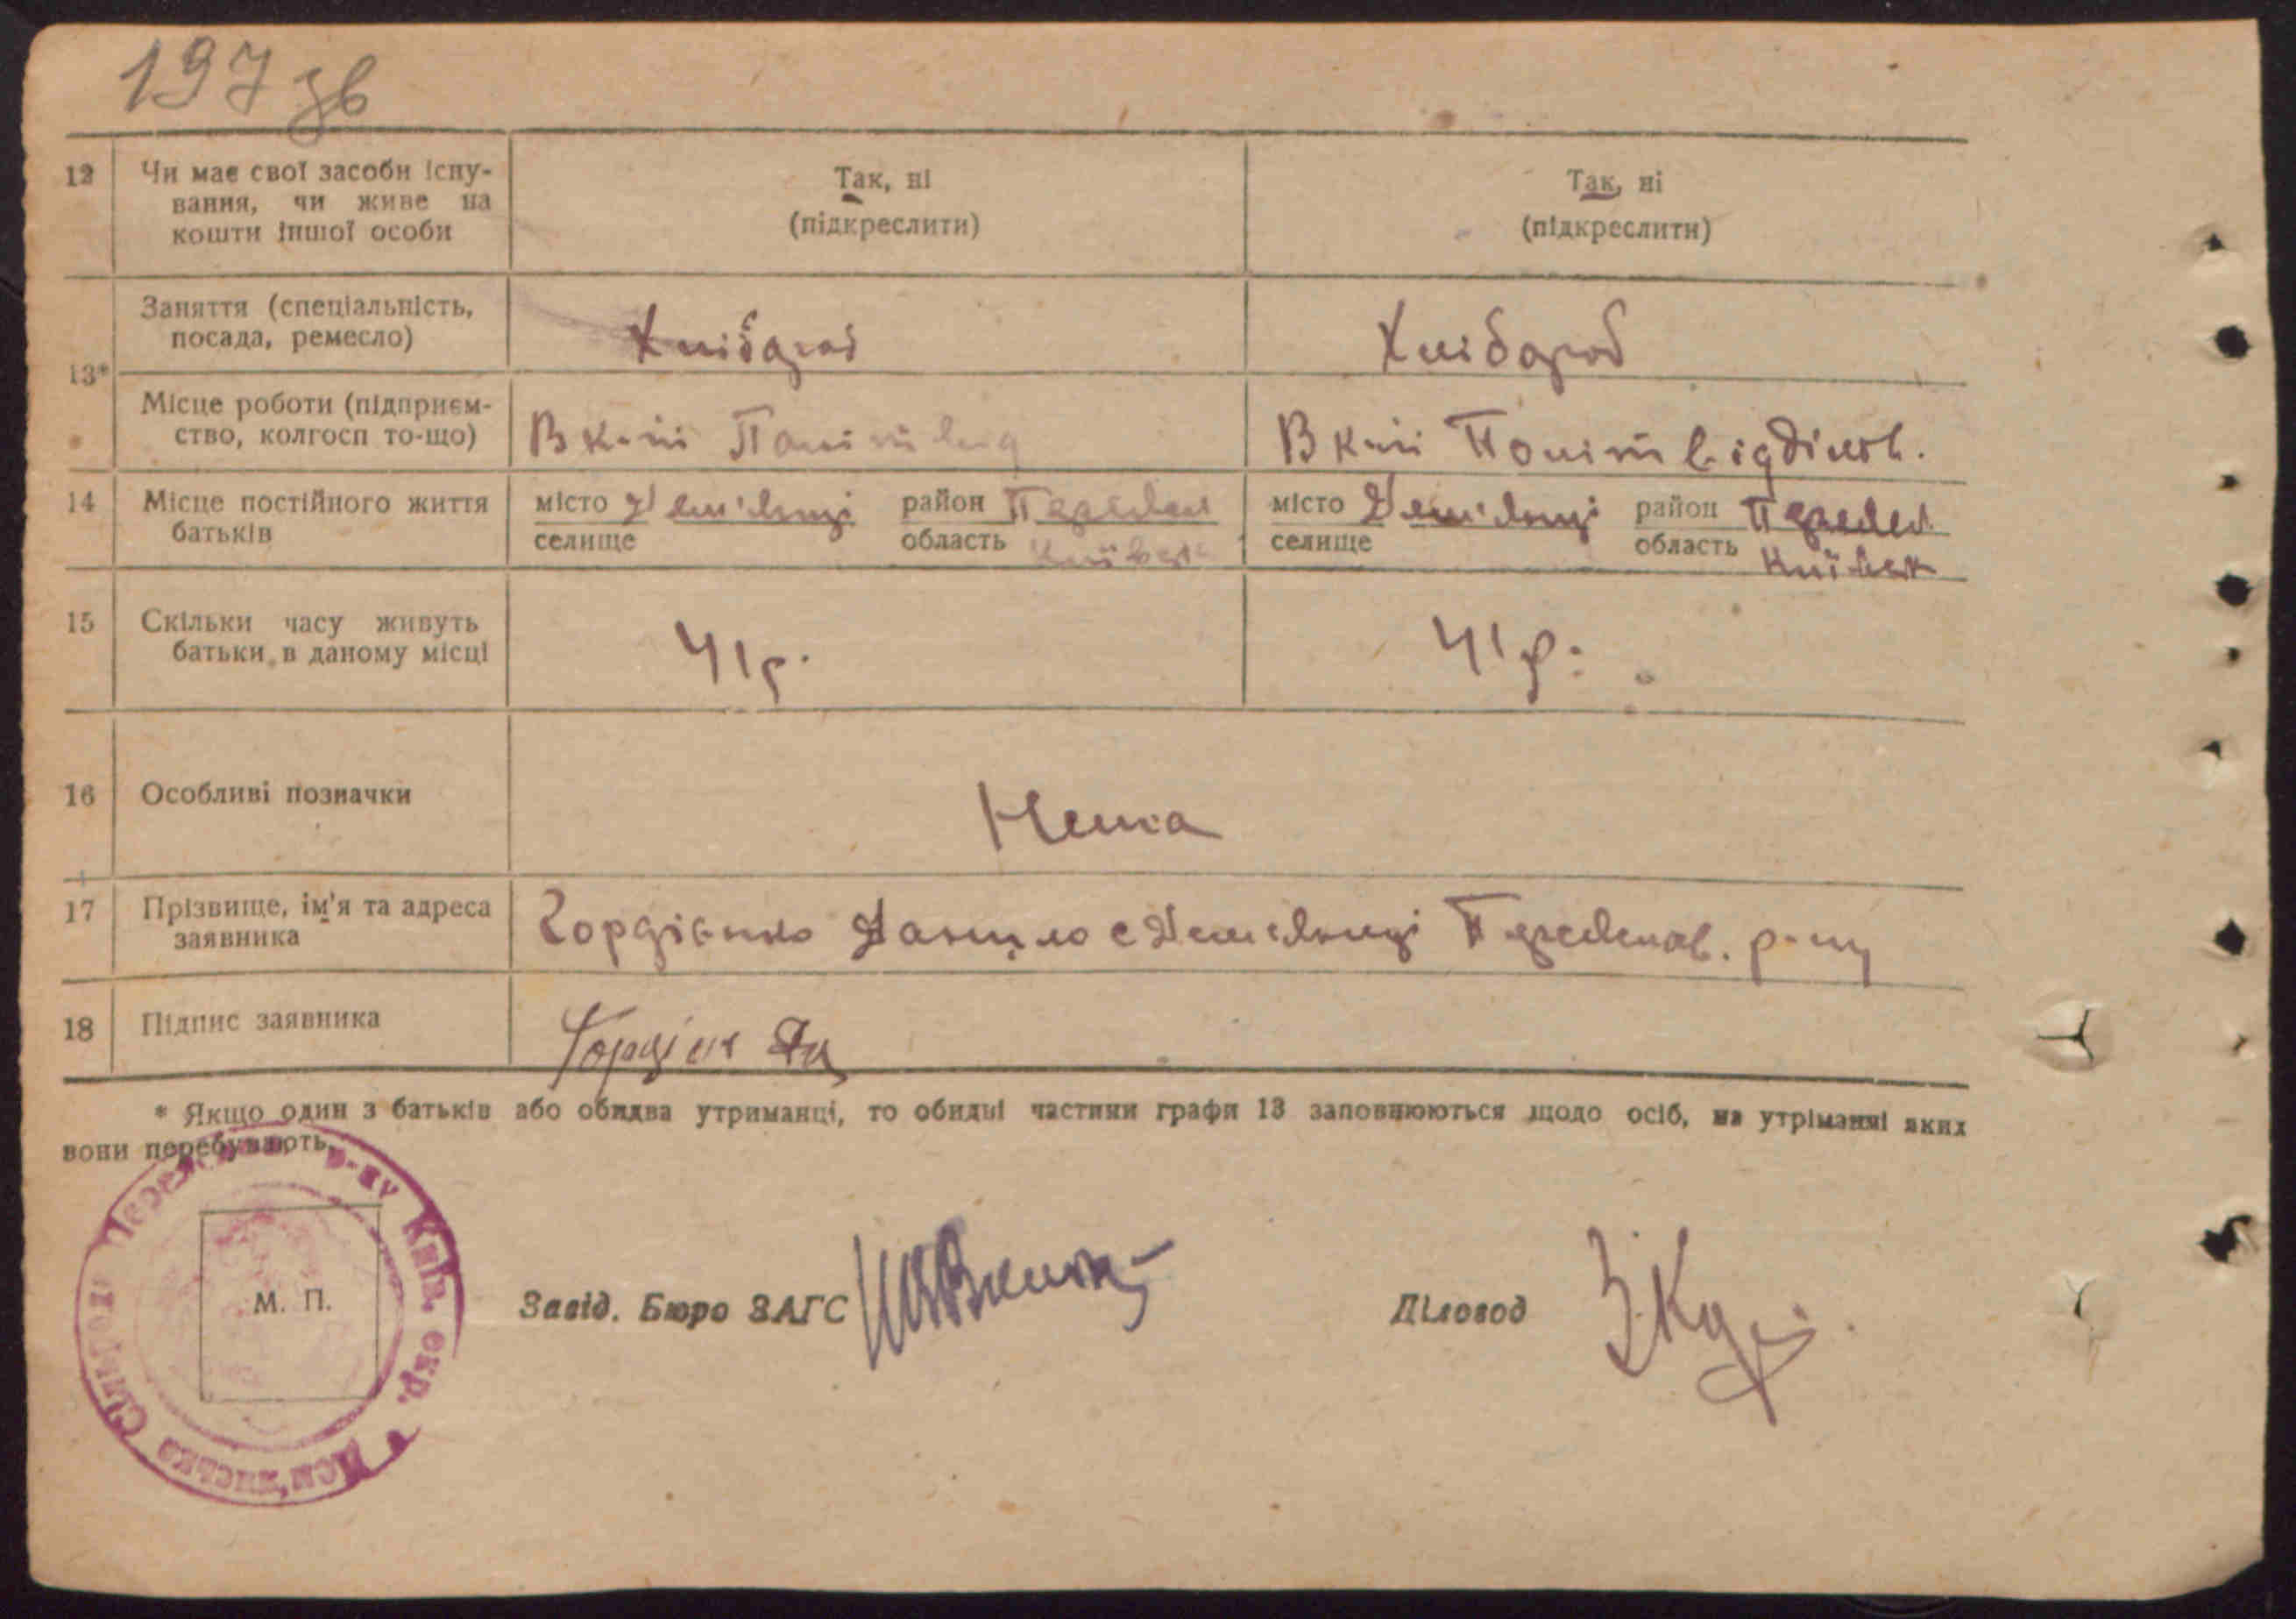 197 зв
12 Чи має свої засоби існу- Так, ні Так, ні
вання, чи живе на (підкреслити) (підкреслити)
кошти іншої особи
13*
Заняття (спеціальність, Хлібороб Хлібороб
посада, ремесло)
Місце роботи (підприєм- В к-пі Політвід В к-пі Політвідділів.
ство, колгосп то-що)
14 Місце постійного життя місто Дем'янці район Переясл місто Дем'янці район Переясл.
батьків селище область Київськ селище область Київськ
15 Скільки часу живуть 41 р. 41 р.
батьки в даному місці
16 Особливі позначки Нема
17 Прізвище, ім'я та адреса Гордієнко Данило с Дем'янці Переяслав. р-ну
заявника
18 Підпис заявника Гордієн Да
* Якщо один з батьків або обидва утриманці, то обидві частини графи 13 заповнюються щодо осіб, на утріманні яких
вони перебувають.
Переяслав р-ну Київ. окр.
Дем'янська Сільрада
М. П.
Завід. Бюро ЗАГС
Діловод